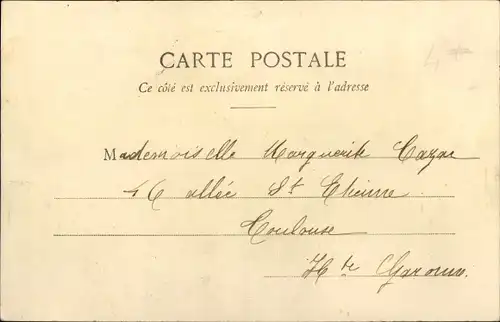 CARTE POSTALE
Ce côté est exclusivement réservé à l'adresse
Mademoiselle Marguerite Cazac
46 allée St Etienne
Toulouse
Hte Garonne